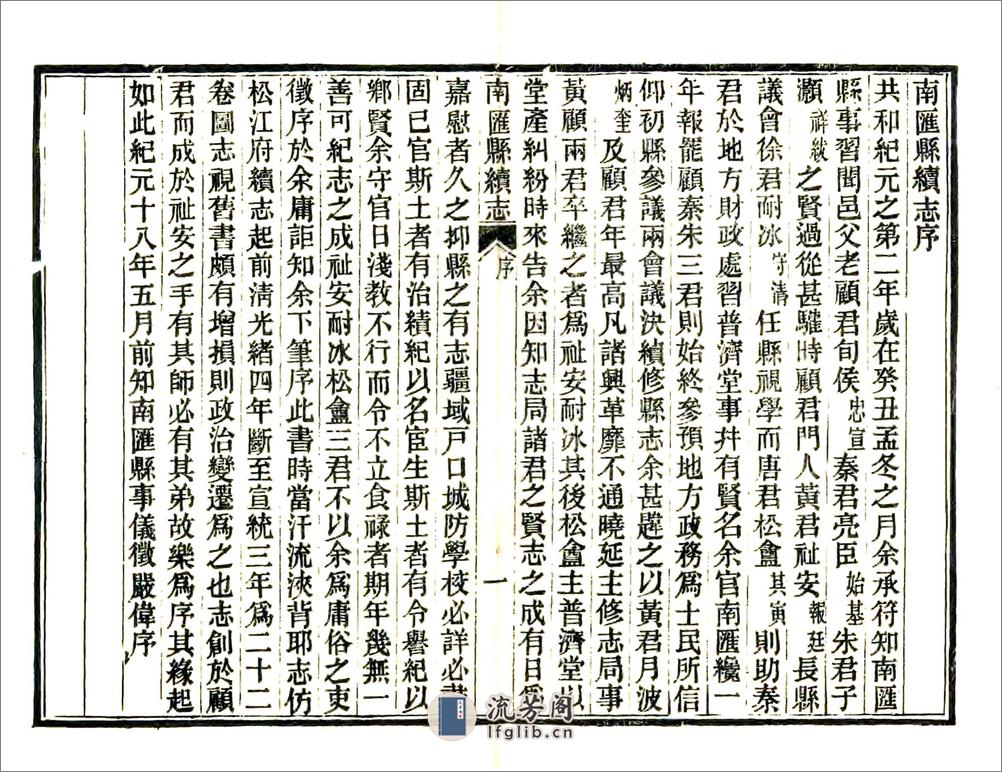 南匯縣續志序
共和紀元之第二年歲在癸丑孟冬之月余承符知南匯
縣事習聞邑父老顧君旬侯忠宣秦君亮臣始基朱君子
灝祥紱之賢過從甚驩時顧君門人黃君祉安報廷長縣
議會徐君耐冰守清任縣視學而唐君松盦其寅則助秦
君於地方財政處習普濟堂事幷有賢名余官南匯纔一
年報罷顧秦朱三君則始終參預地方政務為士民所信
仰初縣參議兩會議決續修縣志余甚韙之以黃君月波
炳奎及顧君年最高凡諸興革靡不通曉延主修志局事
黃顧兩君卒繼之者為祉安耐冰其後松盦主普濟堂以
堂產糾紛時來告余因知志局諸君之賢志之成有日為
南匯縣續志 序 一
嘉慰者久之抑縣之有志疆域戶口城防學校必詳必書
固已官斯土者有治績紀以名宦生斯土者有令譽紀以
鄉賢余守官日淺教不行而令不立食祿者期年幾無一
善可紀志之成祉安耐冰松盦三君不以余為庸俗之吏
徵序於余庸詎知余下筆序此書時當汗流浹背耶志仿
松江府續志起前清光緒四年斷至宣統三年為二十二
卷圖志視舊書頗有增損則政治變遷為之也志創於顧
君而成於祉安之手有其師必有其弟故樂為序其緣起
如此紀元十八年五月前知南匯縣事儀徵嚴偉序
流芳阁
lfglib.cn